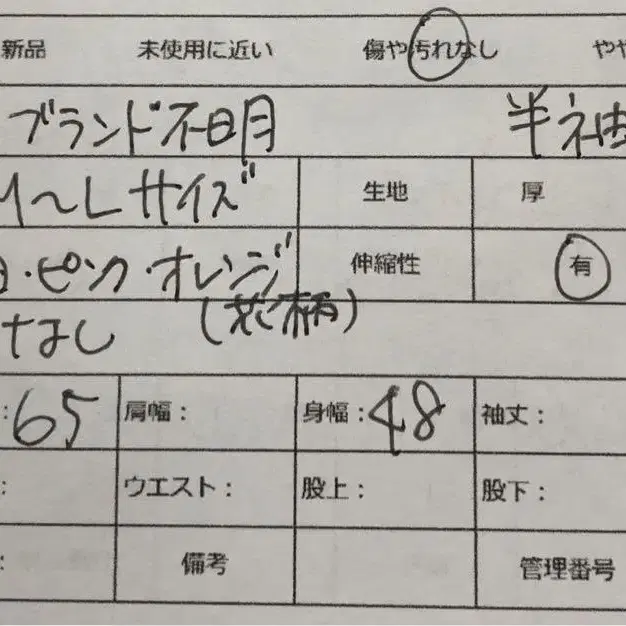 新品 未使用に近い 傷や汚れなし やや
ブランド不明 半袖
M～Lサイズ 生地 厚
白・ピンク・オレンジ 伸縮性 有
(花柄)
なし
: 65 肩幅: 身幅: 48 袖丈:
: ウエスト: 股上: 股下:
: 備考 管理番号